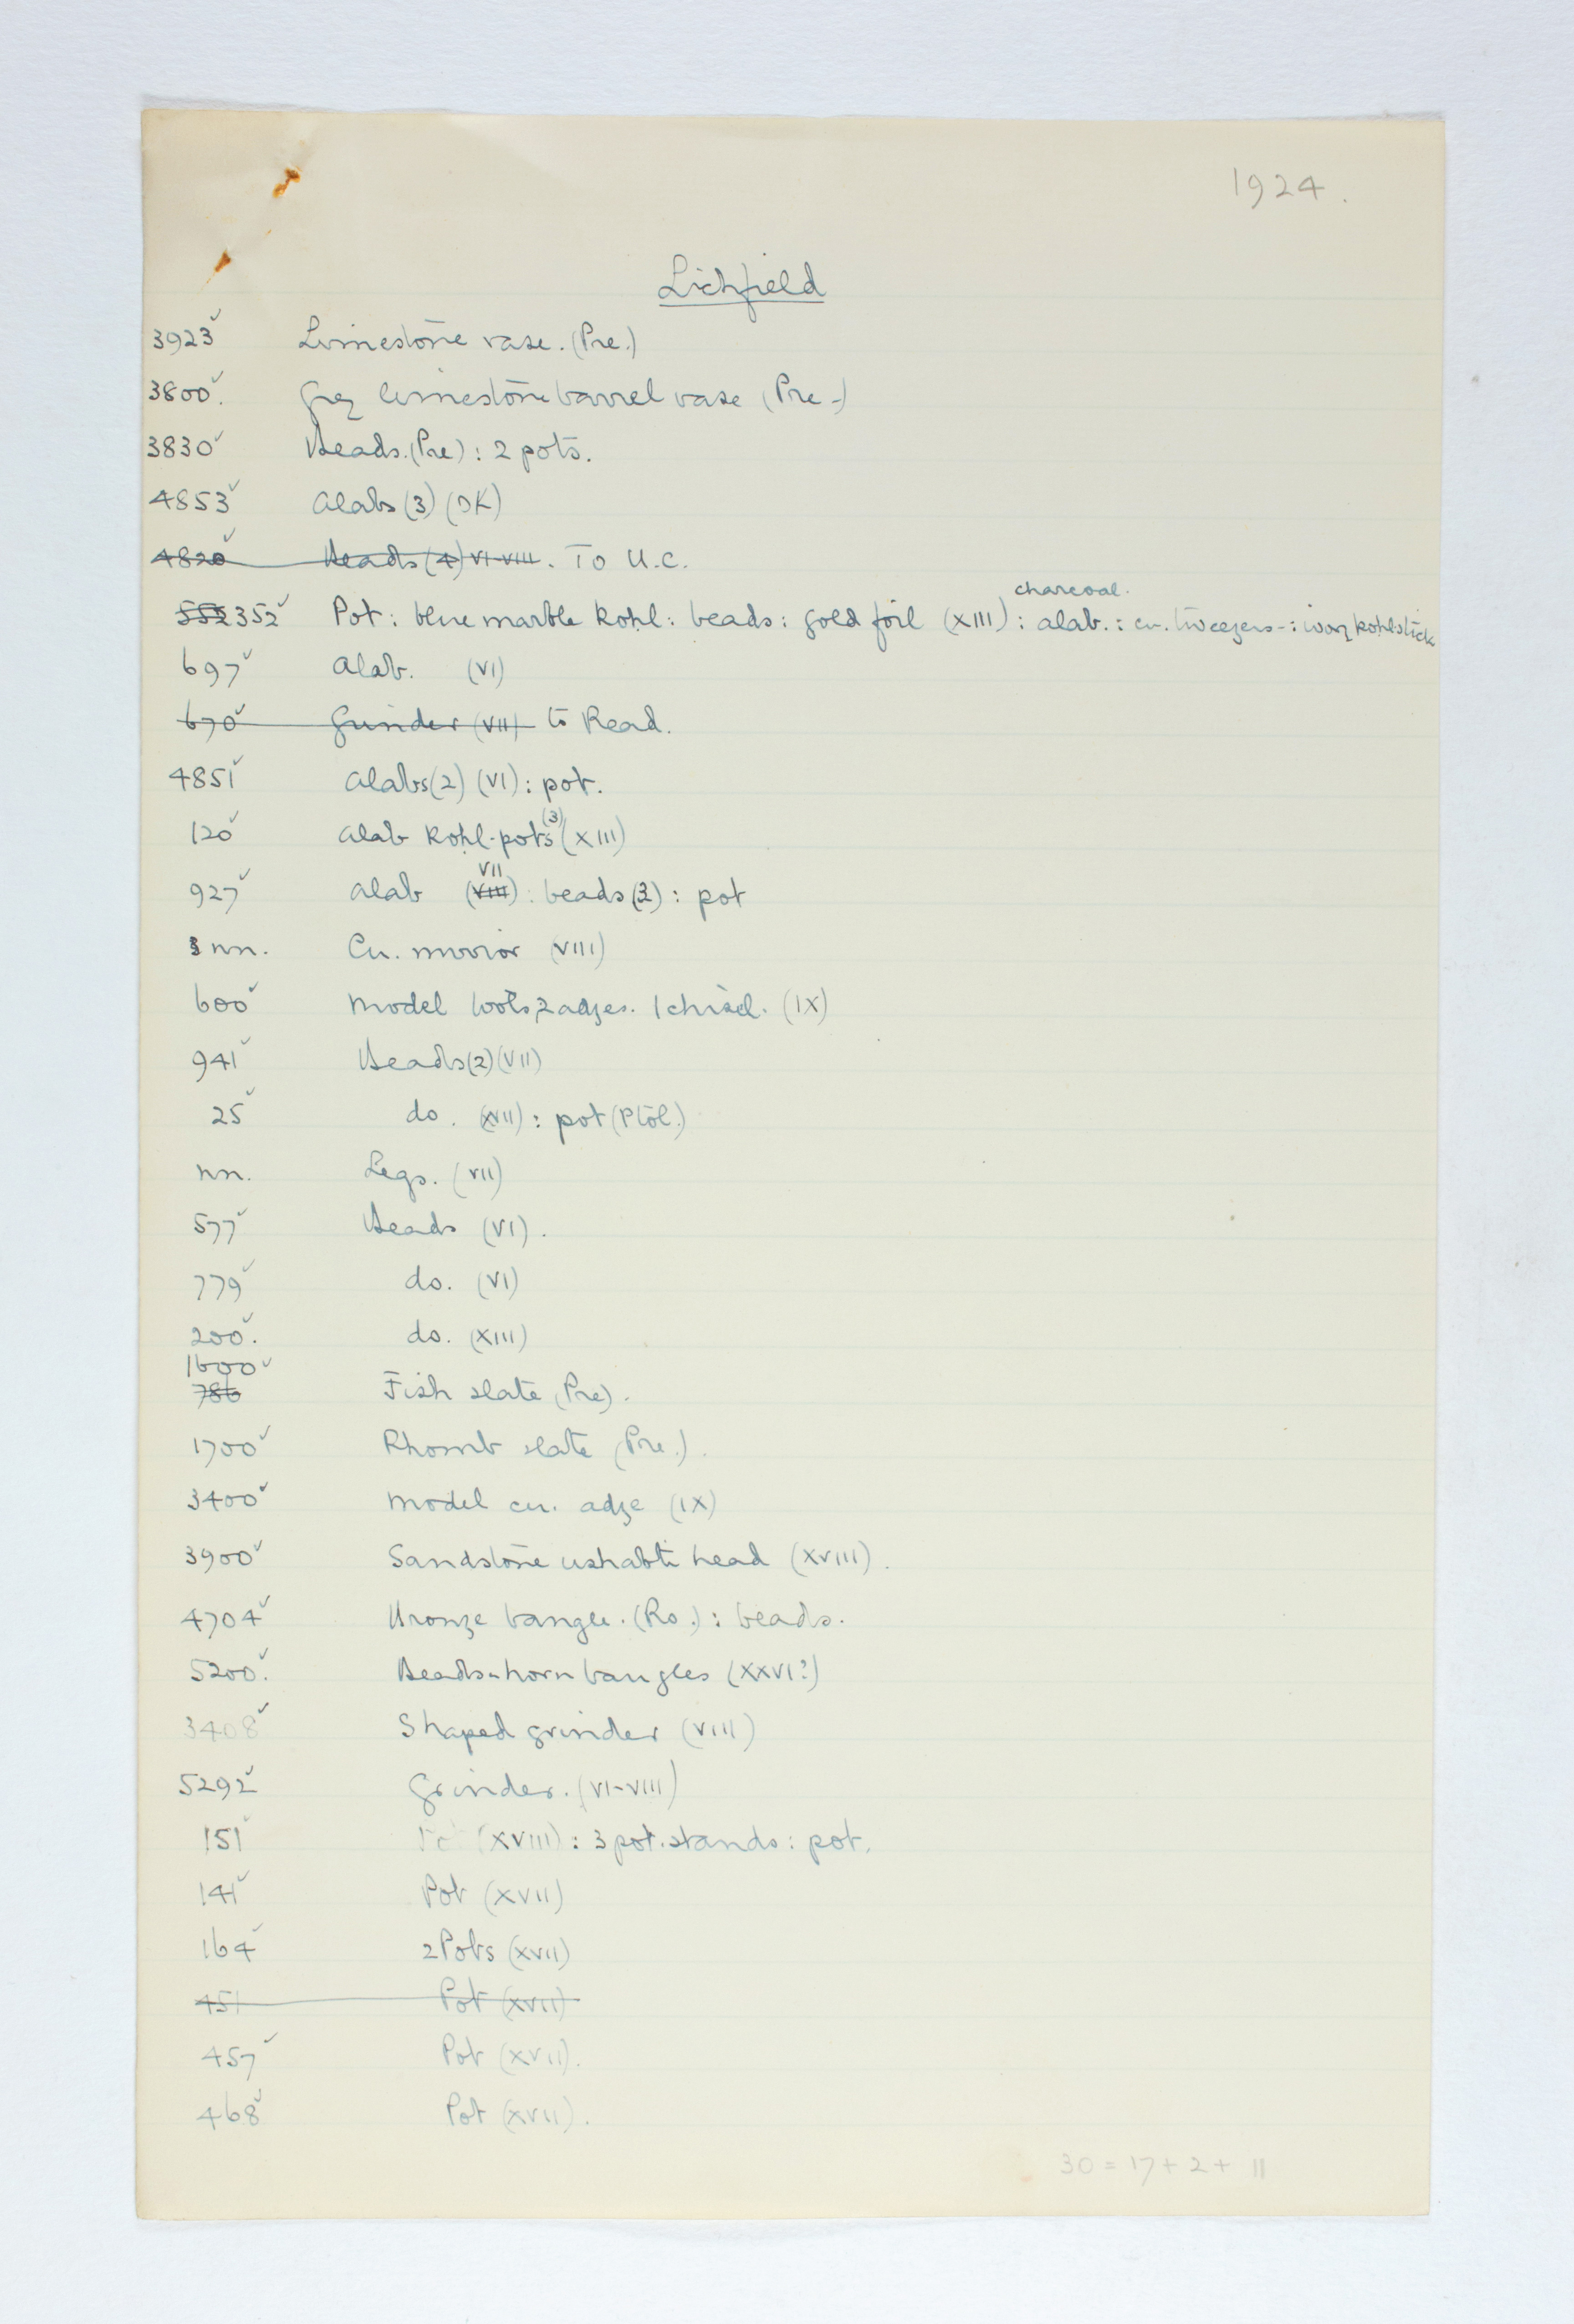 1924.
Lichfield
3923✓ Limestone vase. (Pre.)
3800✓. Grey limestone barrel vase (Pre-)
3830✓ Beads. (Pre) : 2 pots.
4853✓ Alabs (3) (OK)
4820✓ Beads (4) VI-VIII. To U.C.
charcoal.
552 352✓ Pot : blue marble Kohl : beads : gold foil (XIII) : alab. : cu. tweezers- : ivory kohlstick
697✓ Alab. (VI)
670✓ Grinder (VII) to Read.
4851✓ Alabs (2) (VI) : pot.
120✓ Alab Kohl-pots (3) (XIII)
VII
927✓ Alab (VIII) : beads (3) : pot
nn. Cu. mirror (VIII)
600✓ Model tools, 2 adzes. 1 chisel. (IX)
941✓ Beads (2) (VII)
25✓ do. (XVII) : pot (Ptol.)
nn. Legs. (VII)
577✓ Beads (VI).
779✓ do. (VI)
200✓. do. (XIII)
1600✓
786 Fish slate (Pre).
1700✓ Rhomb slate (Pre.).
3400✓ Model cu. adze (IX)
3900✓ Sandstone ushabti head (XVIII).
4704✓ Bronze bangle. (Ro.) : beads.
5200✓. Beads & horn bangles (XXVI?)
3408✓ Shaped grinder (VIII)
5292✓ Grinder. (VI-VIII)
151✓ (XVIII) : 3 pot-stands : pot.
141✓ Pot (XVII)
164✓ 2 Pots (XVII)
451 Pot (XVII)
457✓ Pot (XVII).
468✓ Pot (XVII).
30 = 17 + 2 + 11